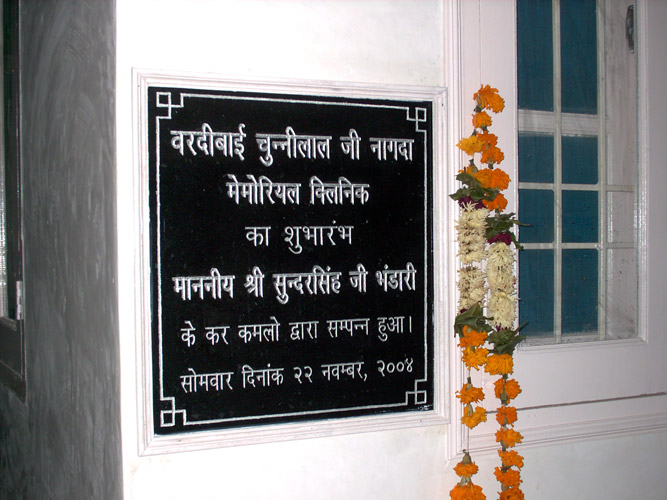 वरदीबाई चुन्नीलाल जी नागदा
मेमोरियल क्लिनिक
का शुभारंभ
माननीय श्री सुन्दरसिंह जी भंडारी
के कर कमलो द्वारा सम्पन्न हुआ।
सोमवार दिनांक २२ नवम्बर, २००४